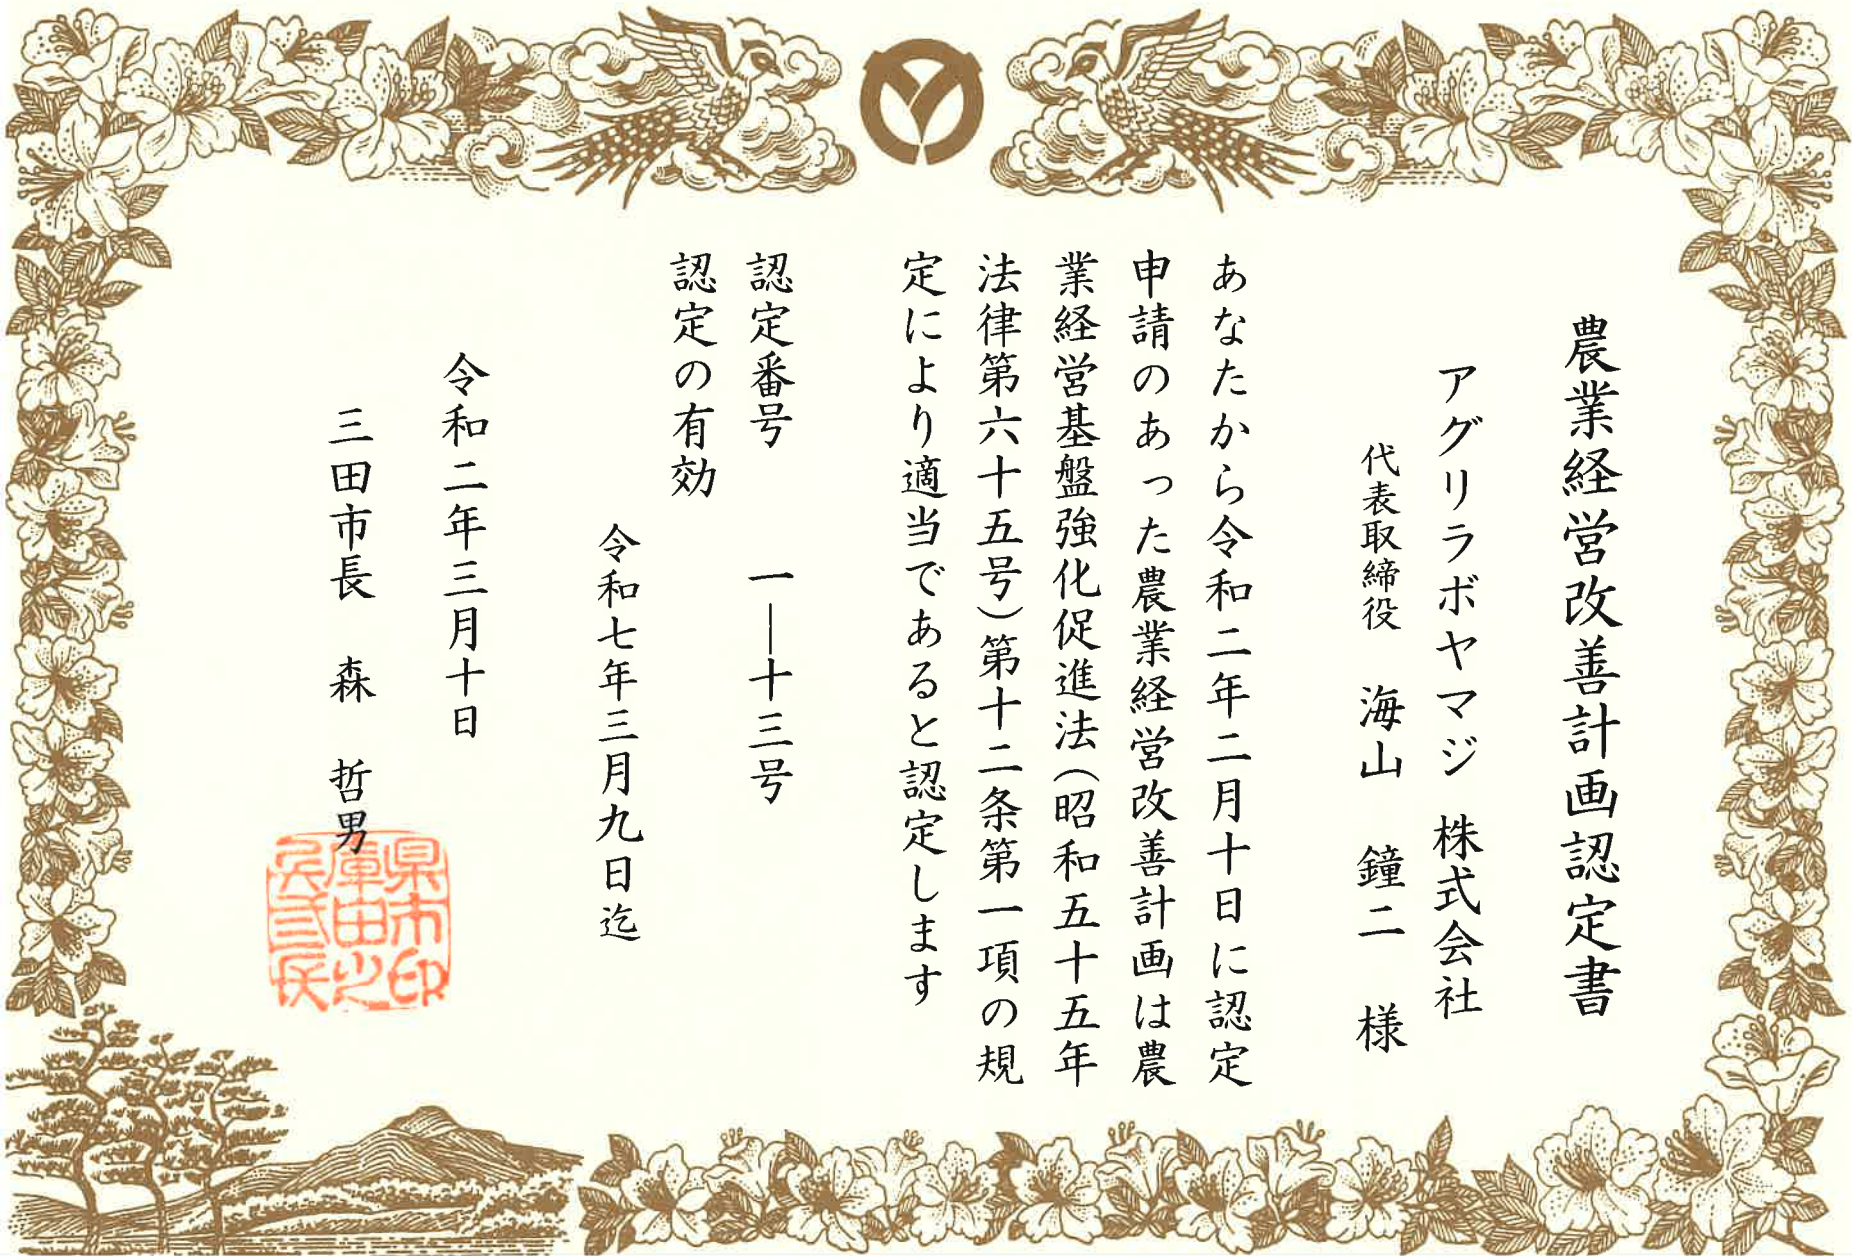 農業経営改善計画認定書
アグリラボヤマジ 株式会社
代表取締役 海山 鐘二 様
あなたから令和二年二月十日に認定
申請のあった農業経営改善計画は農
業経営基盤強化促進法(昭和五十五年
法律第六十五号)第十二条第一項の規
定により適当であると認定します
認定番号 一―十三号
認定の有効
令和七年三月九日迄
令和二年三月十日
三田市長 森 哲男
兵庫県
三田市
長之印